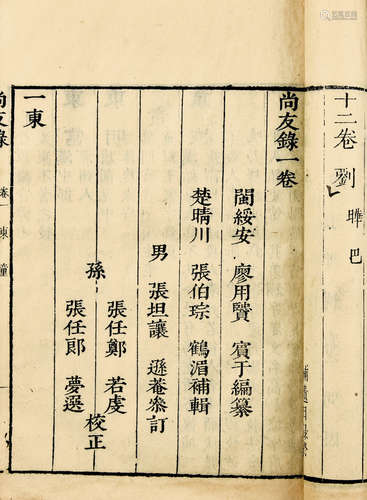 十二卷 劉 曄 巴
尚友錄一卷
閩綏安 廖用賢 賓于編纂
楚晴川 張伯琮 鶴湄補輯
男 張坦讓 遜菴參訂
張任鄭 若虔
孫 校正
張任郎 夢選
一東
尚友錄 卷一 東 童